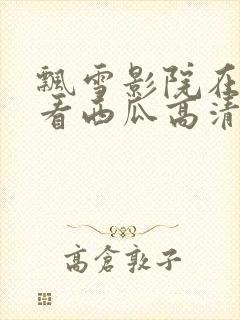 飘雪影院在
看西瓜高清
高倉敦子